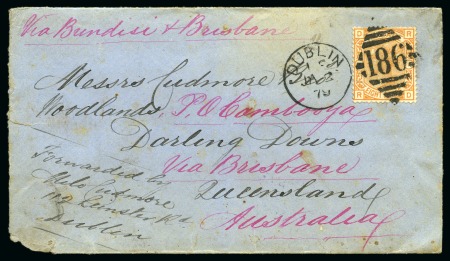 Via Brindisi & Brisbane
DUBLIN
JA 2
79
186
Messrs Cudmore
Woodlands, P.O. Cambooya
Darling Downs
Via Brisbane
Queensland
Australia
Forwarded by
Cudmore
Leinster Rd
Dublin